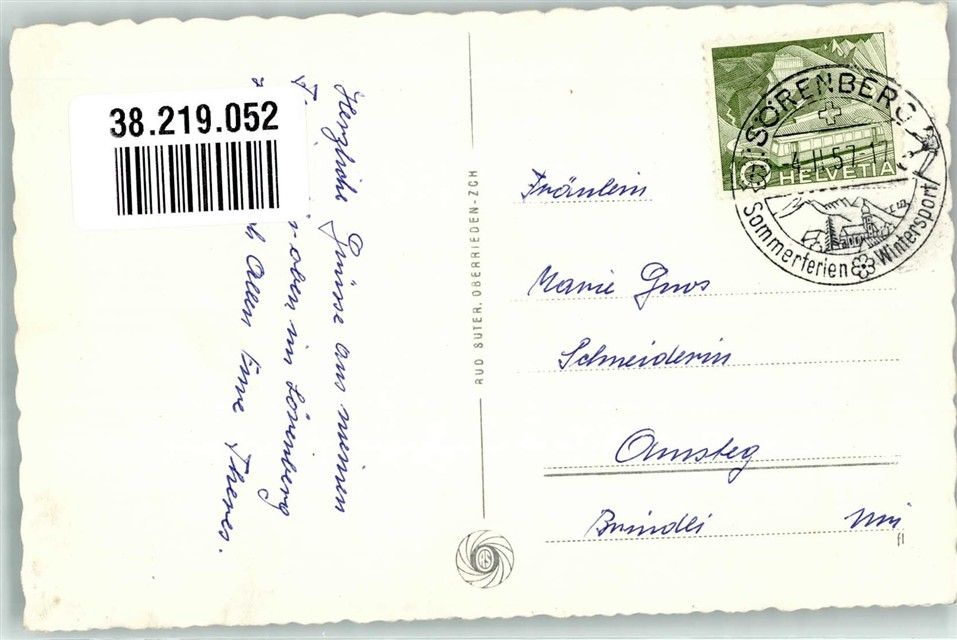 38.219.052
Herzliche Grüsse aus meinen
oben in Sörenberg
Allen Eure Theres.
RUD SUTER, OBERRIEDEN-ZCH
RS
SÖRENBERG
4.II.57-1
Sommerferien Wintersport
10 HELVETIA
Fräulein
Marie Gnos
Schneiderin
Amsteg
Bründli Uri
fl